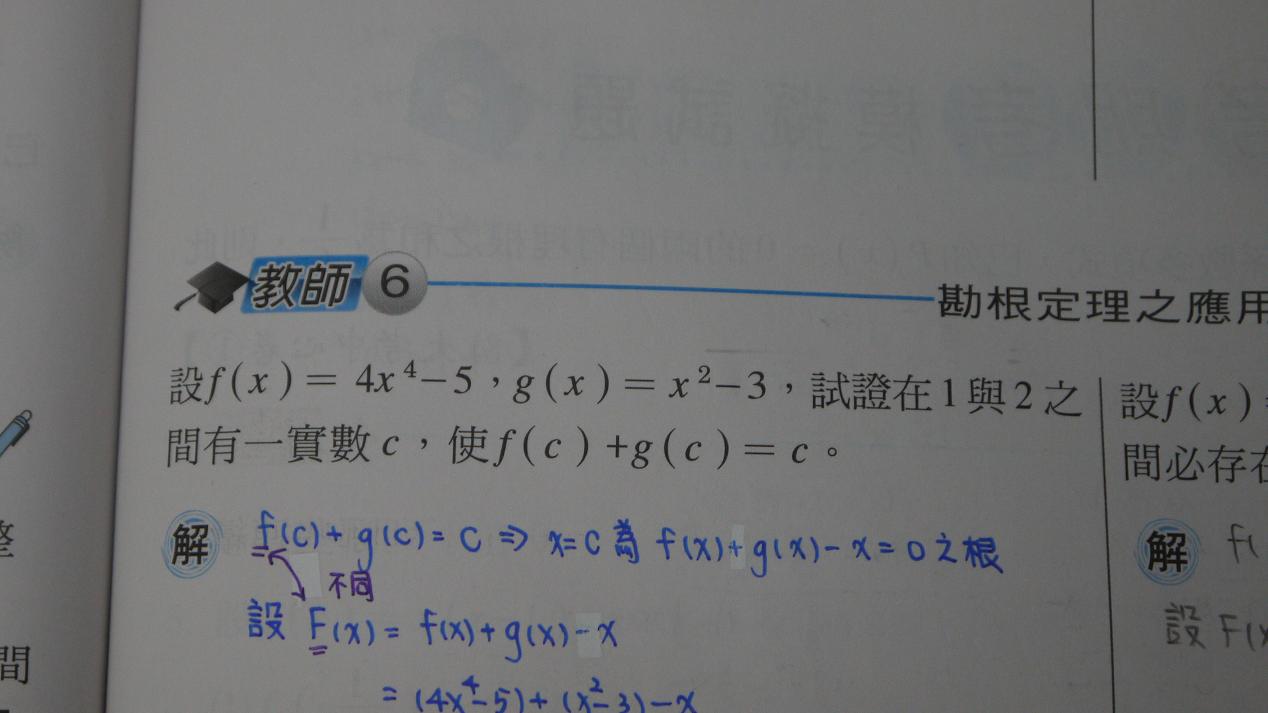 教師 6
勘根定理之應用
設f(x)= 4x⁴−5，g(x)=x²−3，試證在1與2之
間有一實數c，使f(c)+g(c)=c。
解 f(c)+g(c)=c ⇒ x=c為 f(x)+g(x)−x=0之根
不同
設 F(x)= f(x)+g(x)−x
=(4x⁴−5)+(x²−3)−x
設f(x)
間必存在
解 f(
設 F(x
間